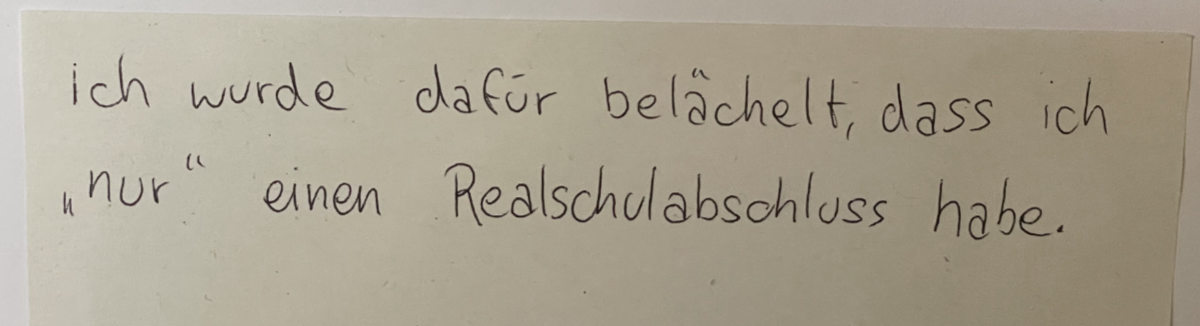 ich wurde dafür belächelt, dass ich
„nur“ einen Realschulabschluss habe.